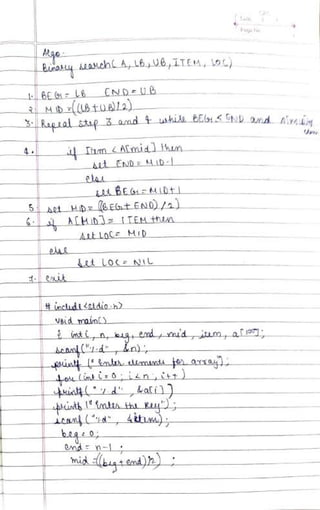 Date
Page No.
Algo -
Binary search ( A, LB, UB, ITEM, LOC)
1. BEG = LB END = UB
2. MID = ((LB + UB)/2)
3. Repeat step 3 and 4 while BEG ≤ END and
4. if Item < A[mid] then
set END = MID-1
else
set BEG = MID+1
5. set MID = ((BEG + END) /2)
6. if A[MID] = ITEM then
set LOC = MID
else
set LOC = NIL
7. exit
# include <stdio.h>
void main()
{ int i, n, beg, end, mid, item, a[100];
scanf("%d", &n);
printf (" Enter elements for array);
for (int i = 0; i<n; i++)
printf("%d", &a[i])
printf("Enter the key");
scanf("%d", &item);
beg = 0;
end = n-1;
mid = ((beg + end)/2);